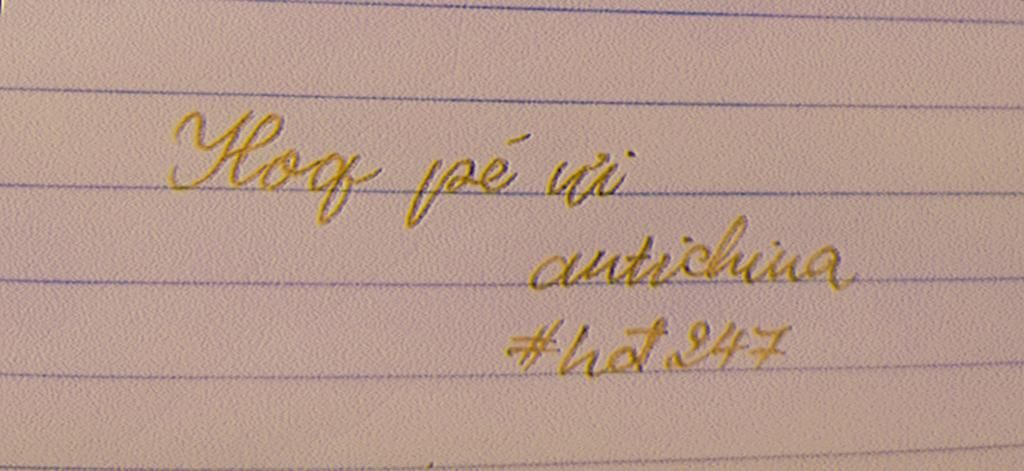 Hoq pé ơi
antichina
#hot247